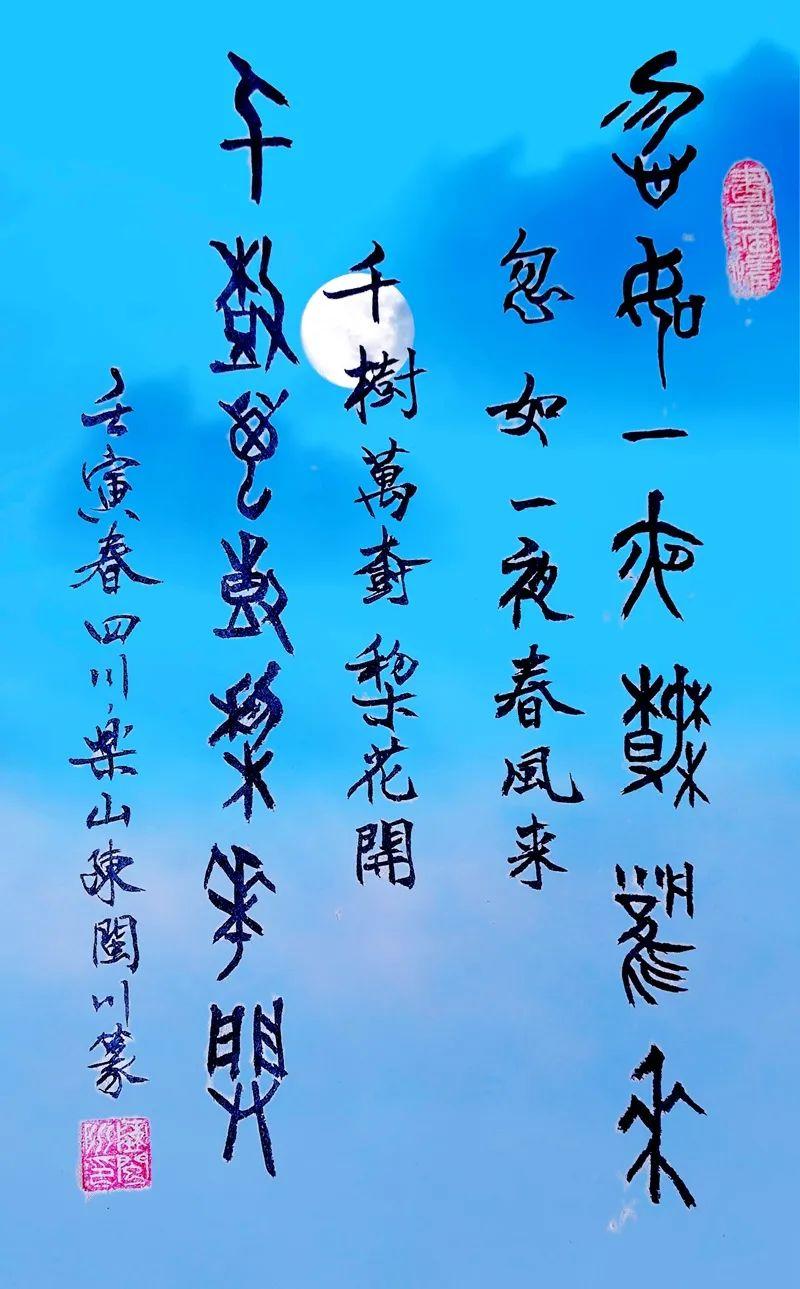 忽如一夜春風來
忽如一夜春風来
千樹萬尌棃花開
千樹萬尌棃花開
壬寅春四川樂山陳閩川篆